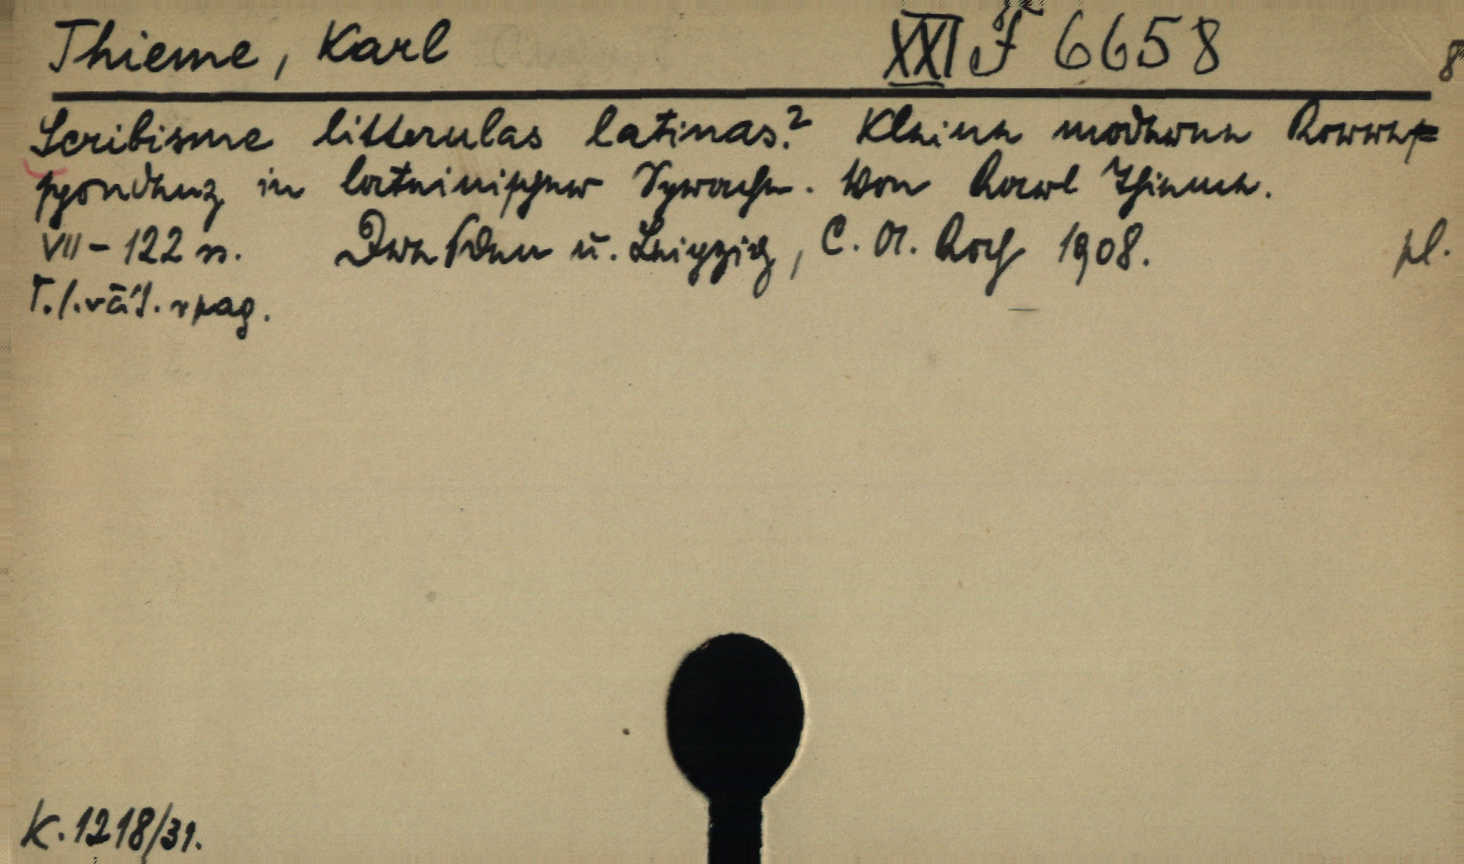 Thieme, Karl XXI F 6658 8°
Scribisme litterulas latinas? Kleine moderne Korres=
pondenz in lateinischer Sprache. Von Karl Thieme.
VII – 122 s. Dresden u. Leipzig, C. A. Koch 1908. pl.
T. l. väš.
K. 1218/31.